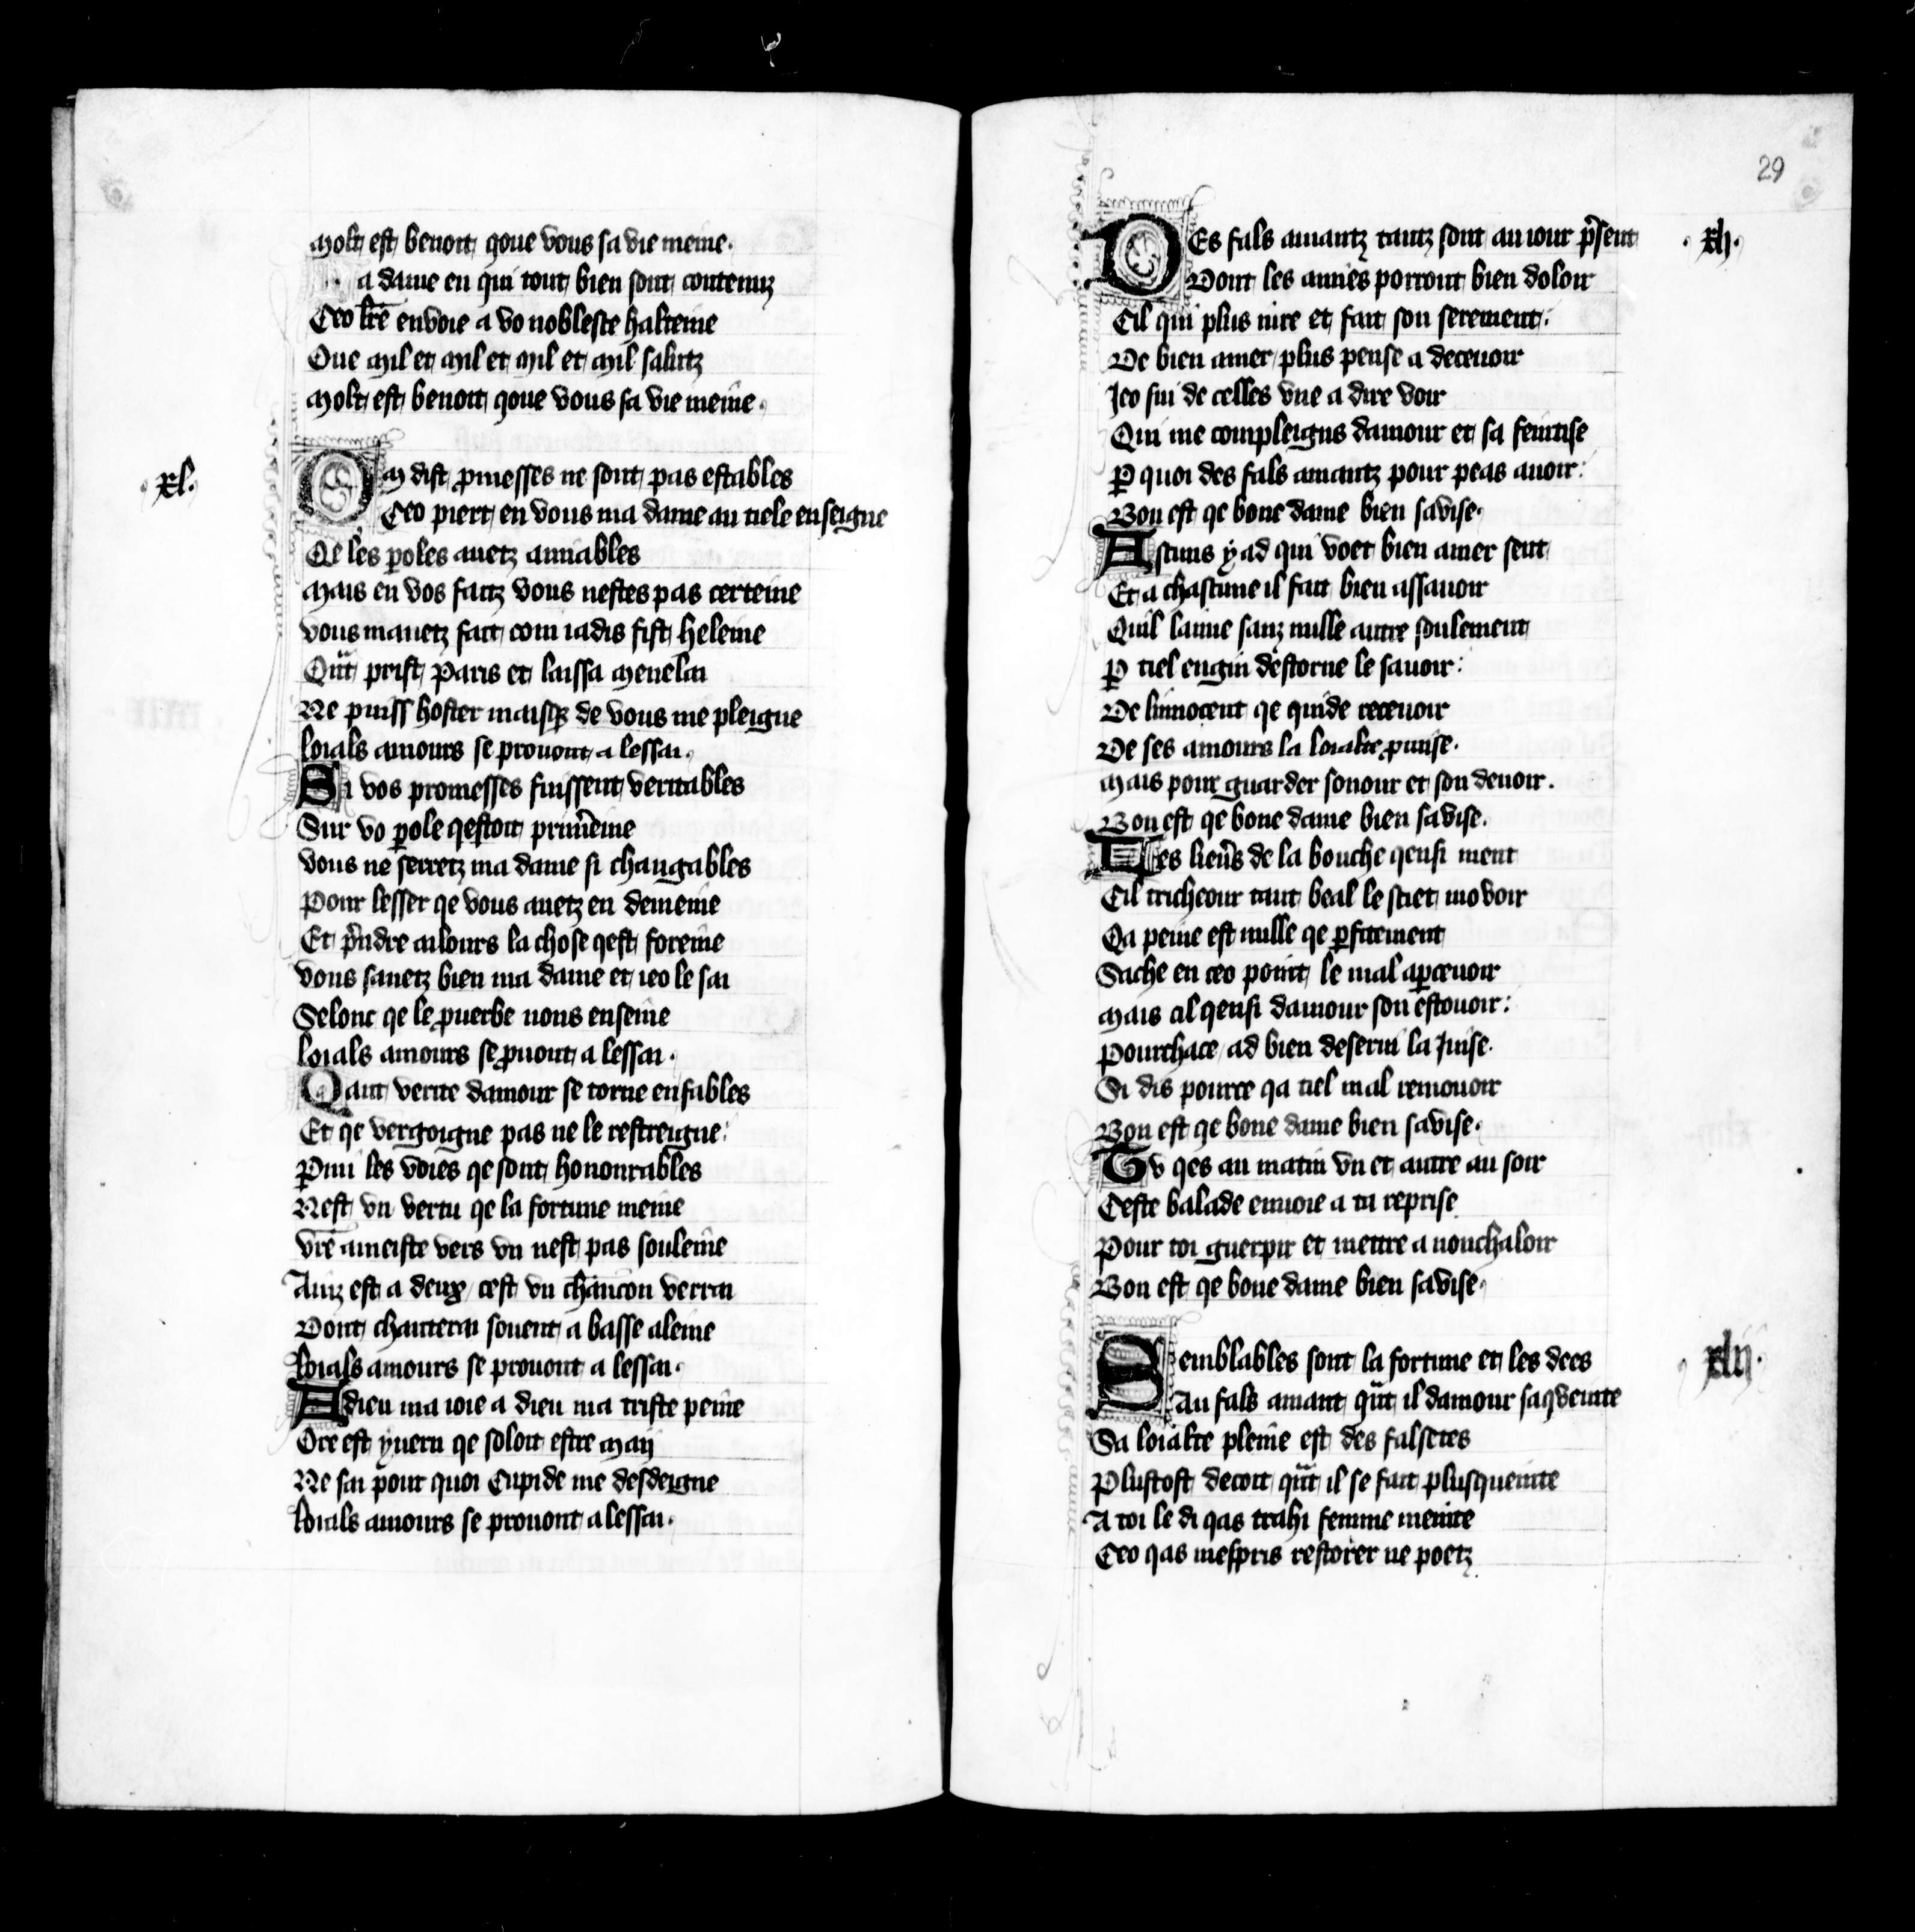 Molt est benoit qoue vous sa vie meine.
a dame en qui tout bien sont contenuz
Ceo lr̄e envoie a vo noblesce halteine
Oue Mil et Mil et Mil et Mil salutz
Molt est benoit qoue vous sa vie meine.
.xl.
Om dist p̱messes ne sont pas estables
Ceo piert en vous ma dame au tiele enseigne
Qe les ꝑoles auetz amiables
Mais en vos faitz vous nestes pas certeine
Vous mauetz fait com iadis fist Heleine
Qũt prist Paris et laissa Menelai
Ne puiss hoster maisqe de vous me pleigne
Loials amours se prouont a lessai.
Si vos promesses fuissent veritables
Sur vo ꝑole qestoit prim̃eine
Vous ne serretz ma dame si changables
Pour lesser qe vous auetz en demeine
Et p̃ndre ailours la chose qest foreine
Vous sauetz bien ma dame et ieo le sai
Selonc qe le ꝓuerbe nous enseine
Loials amours se ꝓuont a lessai.
Qant verite damour se torne en fables
Et qe vergoigne pas ne le restreigne:
Ꝑmi les voies qe sont honourables
Nest vn vertu qe la fortune meine
Vr̄e ameiste vers vn nest pas souleine
Ainz est a deux / cest vn chancon verrai
Dont chanterai souent a basse aleine
Loials amours se prouont a lessai.
Adieu ma ioie a dieu ma triste peine
Ore est yuern qe soloit estre Maij
Ne sai pour quoi Cupide me desdeigne
Loials amours se prouont a lessai.
29
DEs fals amantz tantz sont au iour p̃sent
.xli.
Dont les amies porront bien doloir
Cil qui plus iure et fait son serement:
De bien amer / plus pense a deceuoir
Jeo sui de celles vne a dire voir
Qui me compleigns damour et sa feintise
Ꝑ quoi des fals amantz pour peas auoir:
Bon est qe bone dame bien savise.
Ascuns y ad qui voet bien amer sent
Et a chascune il fait bien assauoir
Quil laime sanz nulle autre soulement
Ꝑ tiel engin destorne le sauoir:
De linnocent qe quide receuoir
De ses amours la loialte ꝓmise.
Mais pour guarder sonour et son deuoir.
Bon est qe bone dame bien savise.
Les lieu̾s de la bouche qensi ment
Cil tricheour tant beal le sciet movoir
Qa peine est nulle qe ꝑfitement
Sache en ceo point le mal aꝑceuoir
Mais cil qensi damour son estouoir:
Pourchace / ad bien deserui la Juise.
Si dis pource qa tiel mal remouoir
Bon est qe bone dame bien savise.
Tv qes au matin vn et autre au soir
Ceste balade enuoie a ta reprise
Pour toi guerpir et mettre a nonchaloir
Bon est qe bone dame bien savise.
Semblables sont la fortune et les dees
.xlij.
Au fals amant qũt il damour saqveinte
Sa loialte pleine est des falsetes
Plustost decoit qũt il se fait plusqueinte
A toi le di qas trahi femme meinte
Ceo qas mespris restorer ne poetz